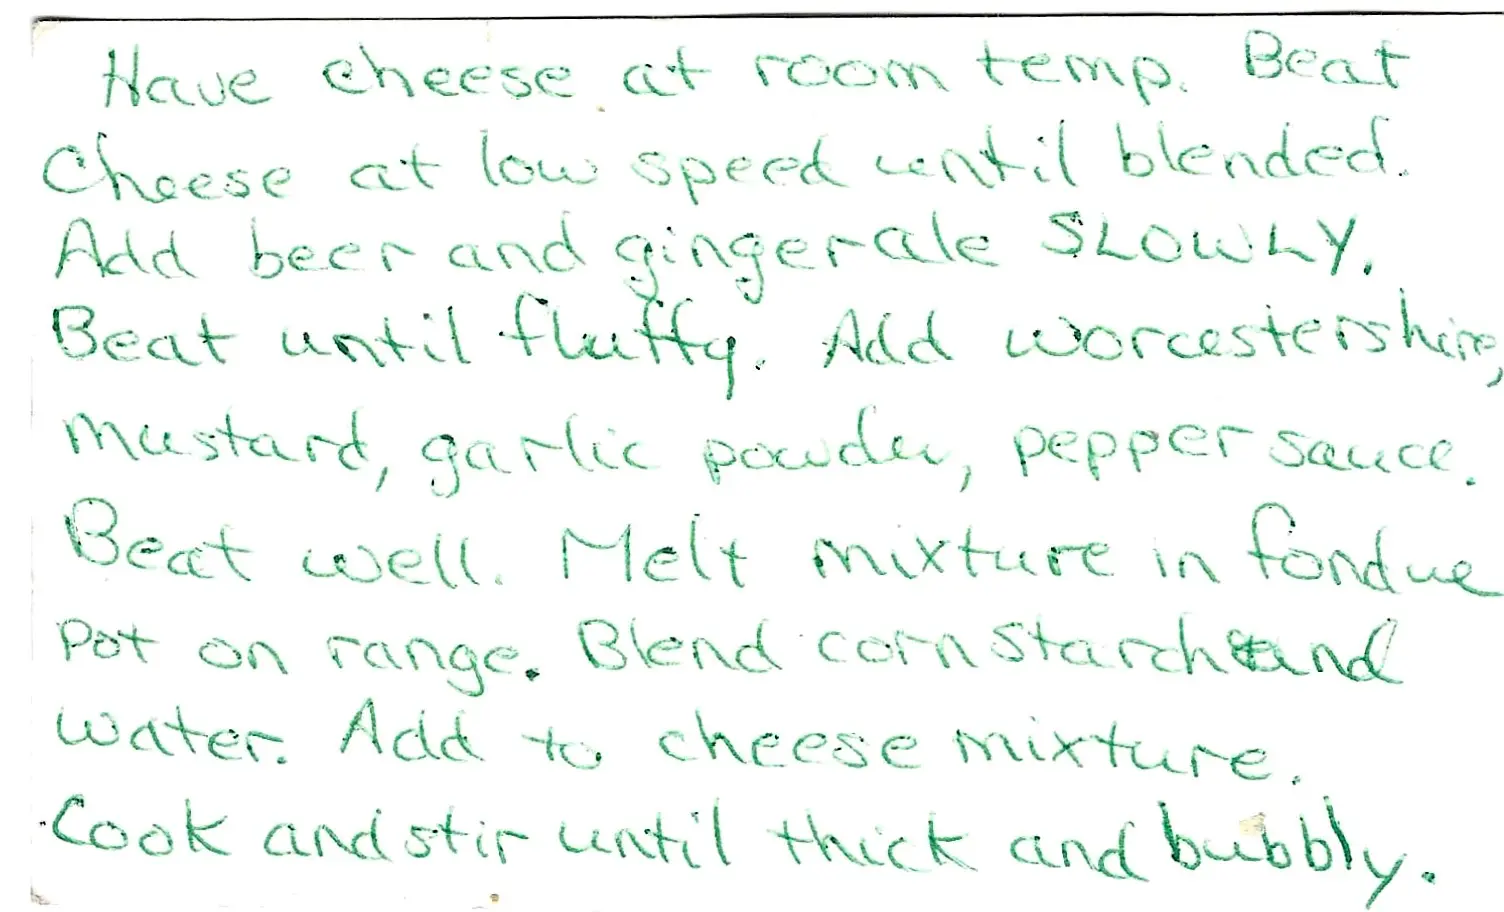 Have cheese at room temp. Beat
Cheese at low speed until blended.
Add beer and gingerale SLOWLY.
Beat until fluffy. Add worcestershire,
mustard, garlic powder, pepper sauce.
Beat well. Melt mixture in fondue
pot on range. Blend cornstarch and
water. Add to cheese mixture.
Cook and stir until thick and bubbly.